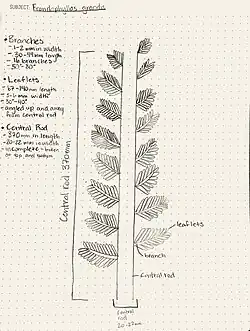 SUBJECT: Frond-phyllos grandis
• Branches
- 1-2 mm in width
- 30-49mm length
- 16 branches
- 50°-80°
• Leaflets
- 87-190mm length
- 2-6 mm width
- 30°-40°
- angled up and away
from central rod
• Central Rod
- 370mm in length
- 20-22 mm in width
- incomplete - broken
at top and bottom
Central rod 370mm
leaflets
branch
Central rod
Central
rod
20-22mm